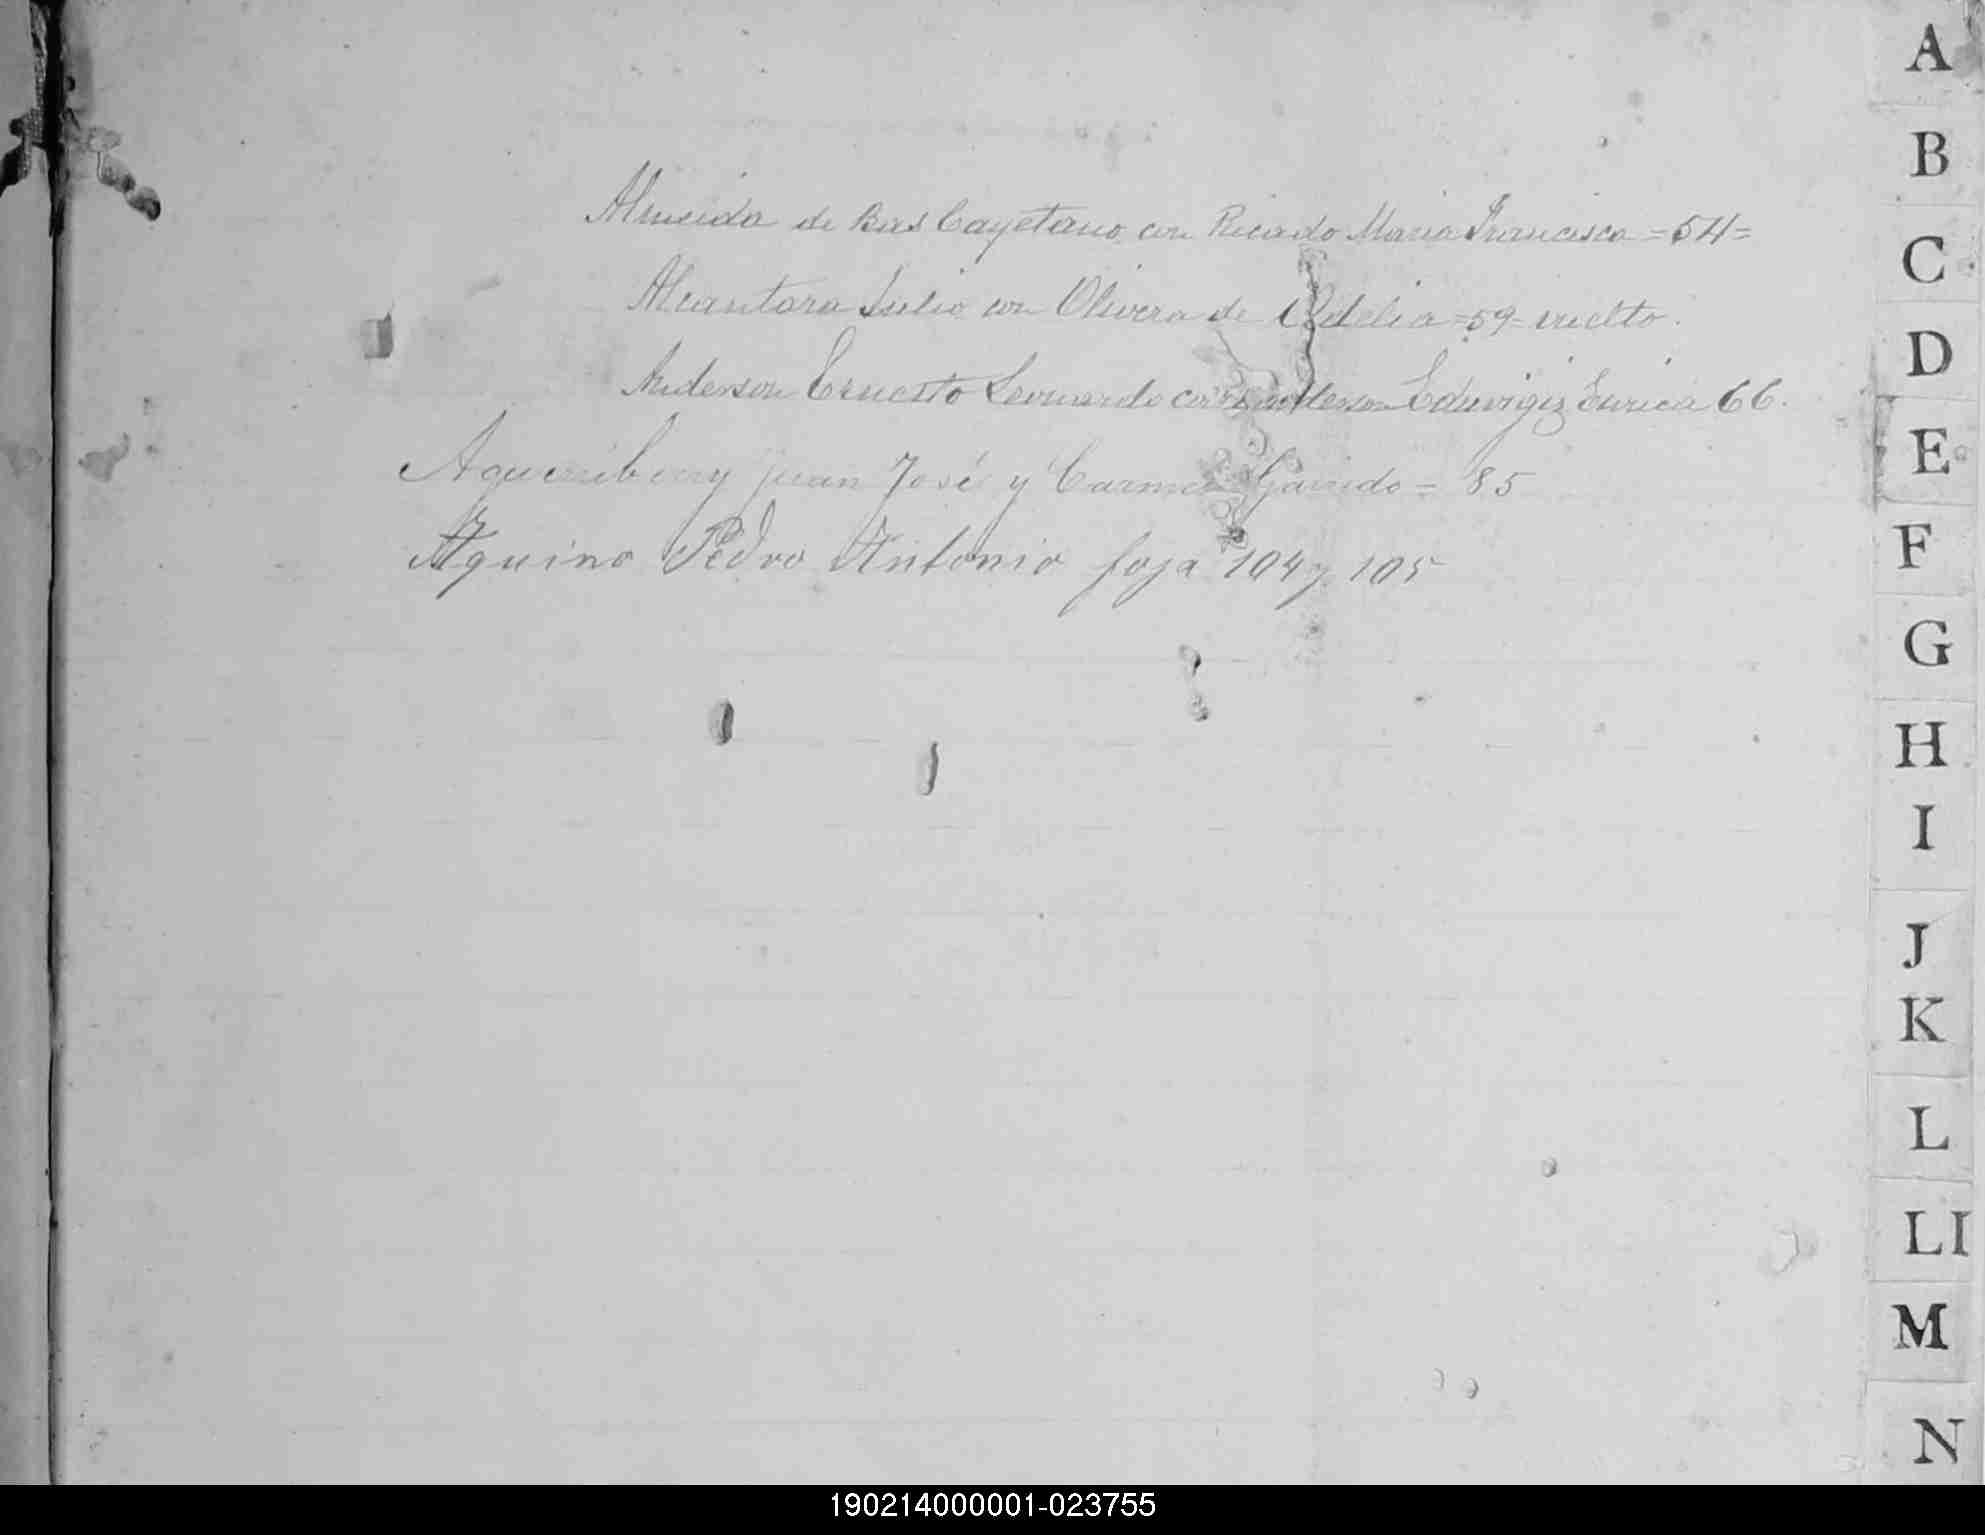 Almeida de Bras Cayetano con Ricardo Maria Francisca = 54 =
Alcantara Julio con Olivera de Odelia = 59 = vuelto.
Anderson Ernesto Leonardo con Anderson Eduvigiz Eurica 66.
Aguerriberry Juan José y Carmen Garrido = 85
Aquino Pedro Antonio foja 104 y 105
A
B
C
D
E
F
G
H
I
J
K
L
LI
M
N
190214000001-023755